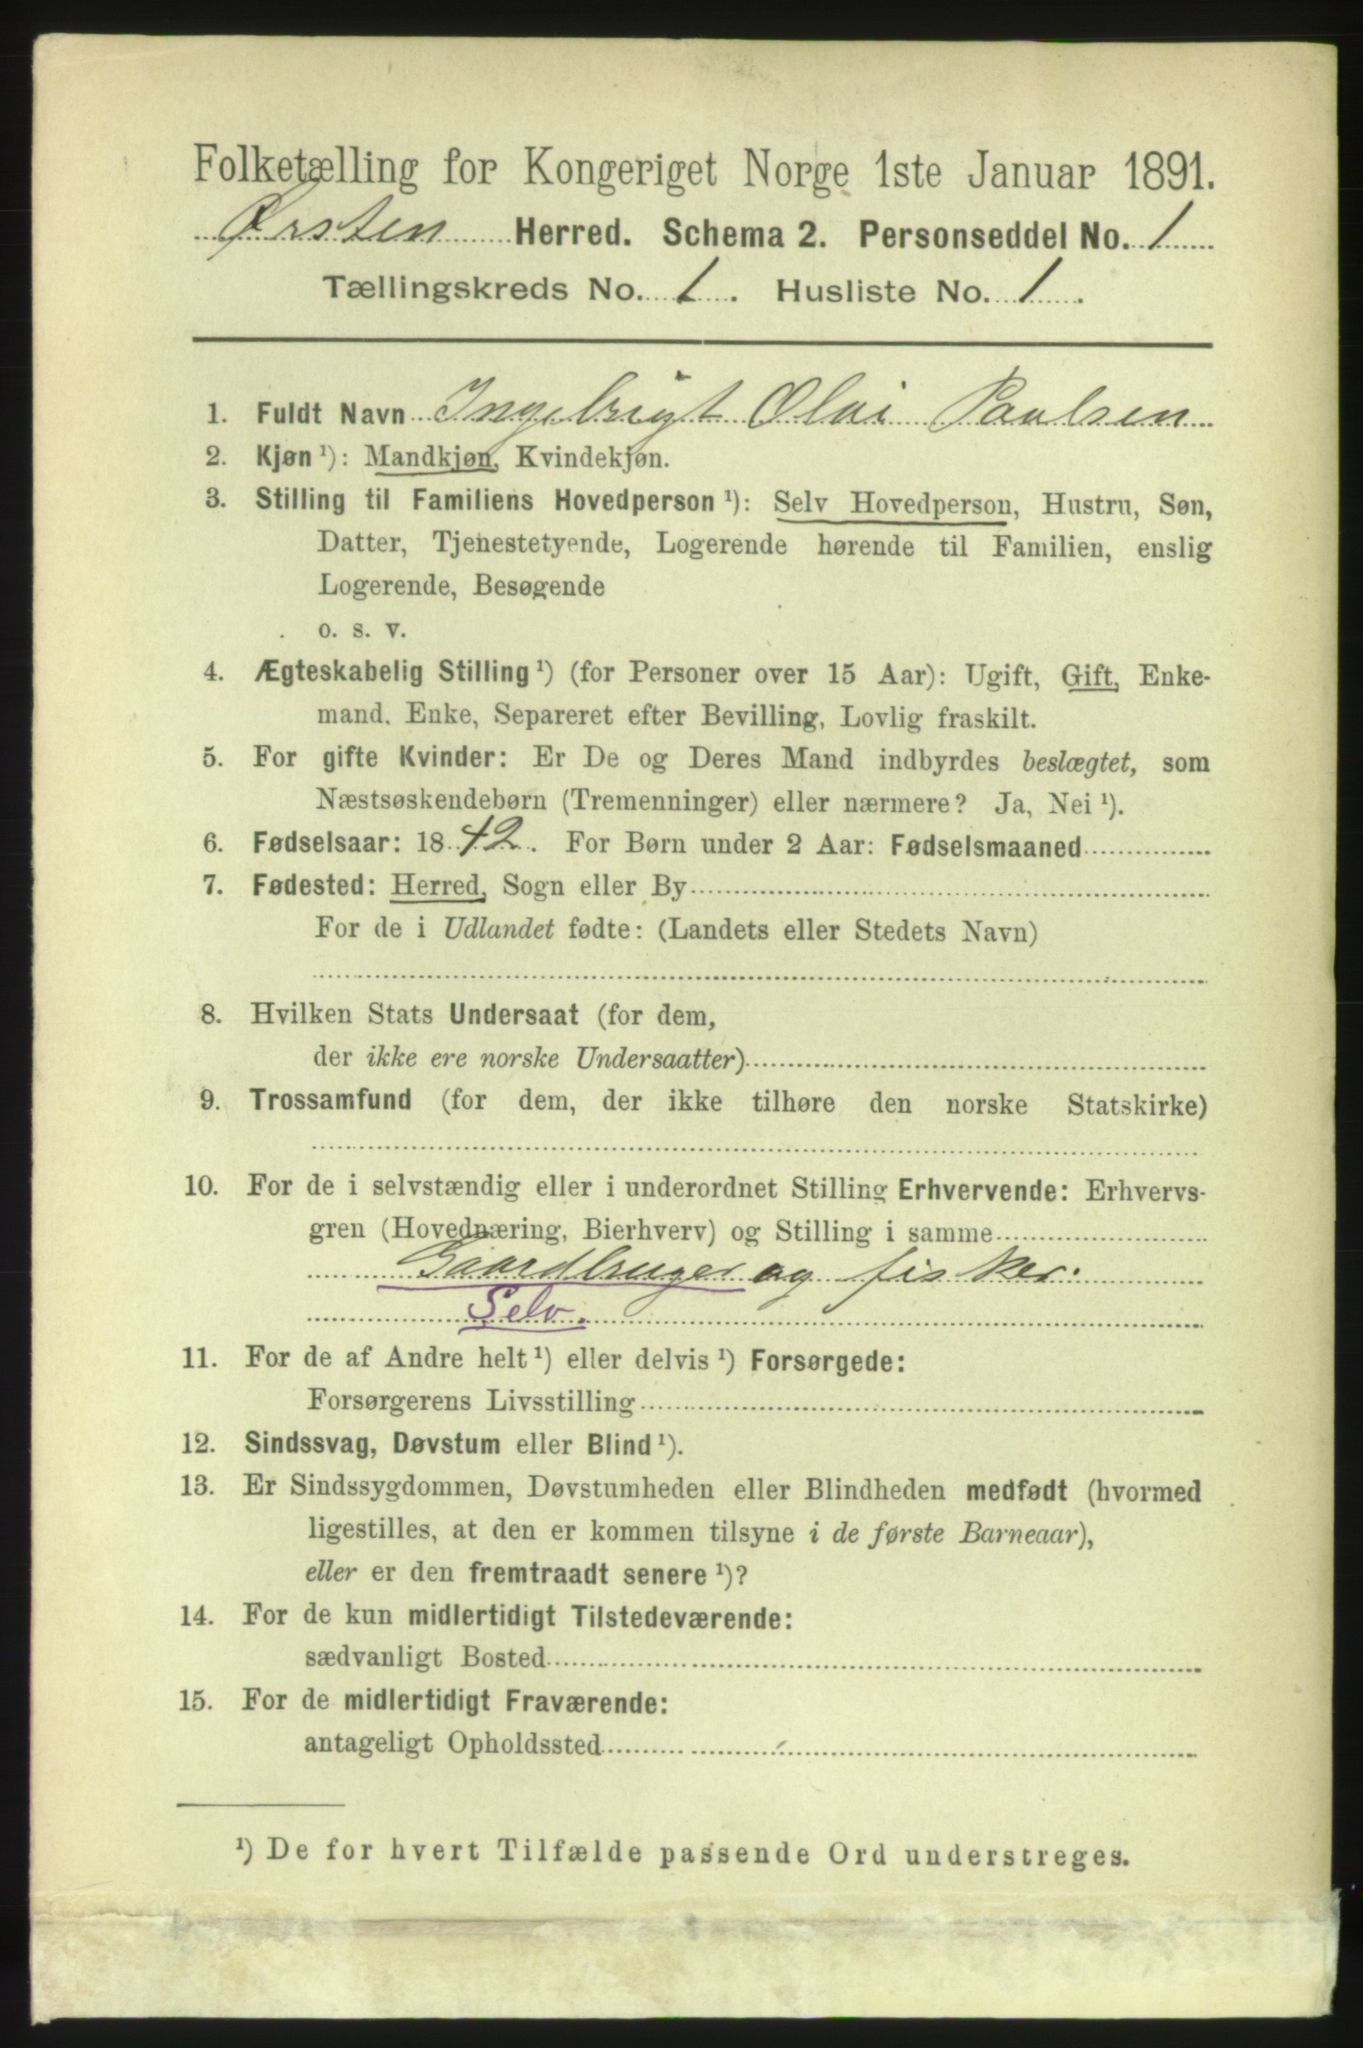 Folketælling for Kongeriget Norge 1ste Januar 1891.
Ørsten Herred. Schema 2. Personseddel No. 1
Tællingskreds No. 1. Husliste No. 1.
1. Fuldt Navn Ingebrigt Olai Paulsen
2. Kjøn ¹): Mandkjøn, Kvindekjøn.
3. Stilling til Familiens Hovedperson ¹): Selv Hovedperson, Hustru, Søn,
Datter, Tjenestetyende, Logerende hørende til Familien, enslig
Logerende, Besøgende
o. s. v.
4. Ægteskabelig Stilling ¹) (for Personer over 15 Aar): Ugift, Gift, Enke-
mand. Enke, Separeret efter Bevilling, Lovlig fraskilt.
5. For gifte Kvinder: Er De og Deres Mand indbyrdes beslægtet, som
Næstsøskendebørn (Tremenninger) eller nærmere? Ja, Nei ¹).
6. Fødselsaar: 1842. For Børn under 2 Aar: Fødselsmaaned
7. Fødested: Herred, Sogn eller By
For de i Udlandet fødte: (Landets eller Stedets Navn)
8. Hvilken Stats Undersaat (for dem,
der ikke ere norske Undersaatter)
9. Trossamfund (for dem, der ikke tilhøre den norske Statskirke)
10. For de i selvstændig eller i underordnet Stilling Erhvervende: Erhvervs-
gren (Hovednæring, Bierhverv) og Stilling i samme
Gaardbruger og fisker.
Selv.
11. For de af Andre helt ¹) eller delvis ¹) Forsørgede:
Forsørgerens Livsstilling
12. Sindssvag, Døvstum eller Blind ¹).
13. Er Sindssygdommen, Døvstumheden eller Blindheden medfødt (hvormed
ligestilles, at den er kommen tilsyne i de første Barneaar),
eller er den fremtraadt senere ¹)?
14. For de kun midlertidigt Tilstedeværende:
sædvanligt Bosted
15. For de midlertidigt Fraværende:
antageligt Opholdssted
¹) De for hvert Tilfælde passende Ord understreges.